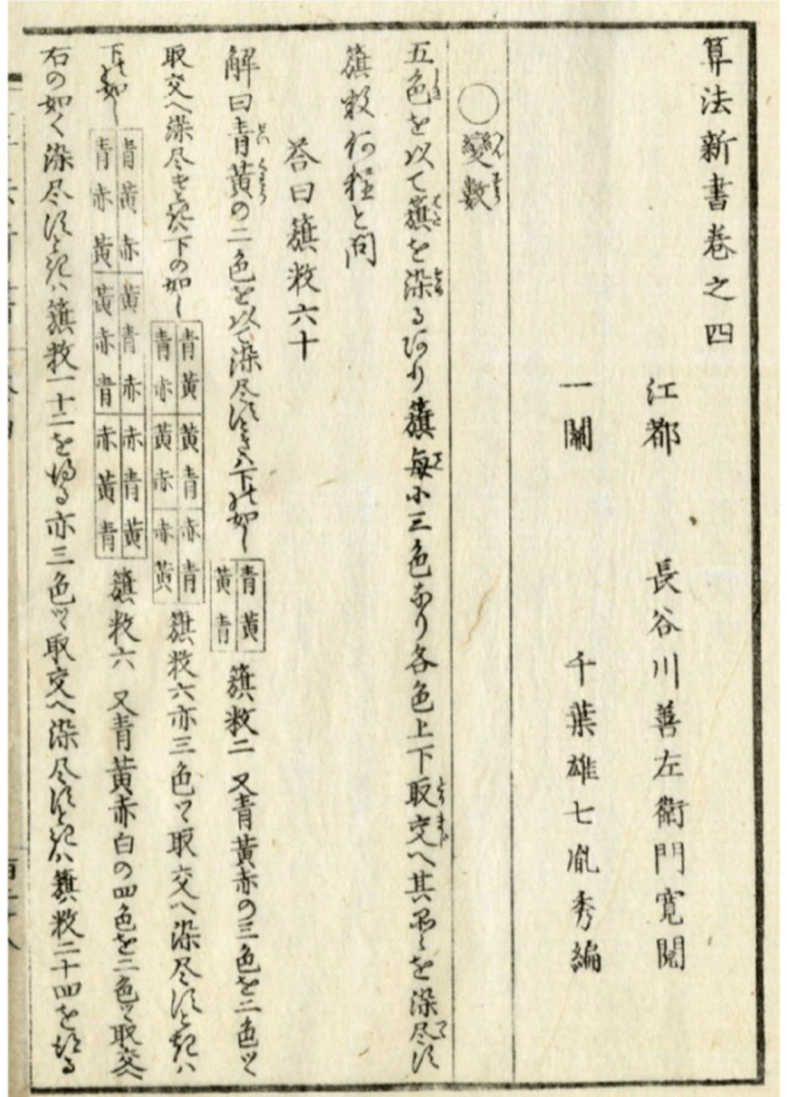 算法新書巻之四
江都 長谷川善左衛門寛閲
一關 千葉雄七胤秀編
○變數
五色を以て籏を染るあり籏毎小三色あり各色上下取交へ其品〻を染尽す
籏数何程と問
荅曰籏数六十
解曰青黄の二色を以て染尽すときハ下の如し 青黄 黄青 籏数二 又青黄赤の三色を二色ツヽ
取交へ染尽すときハ下の如し 青黄 黄青 赤青 青赤 黄赤 赤黄 籏数六亦三色ツヽ取交へ染尽すときハ
下の如し 青黄赤 黄青赤 赤青黄 青赤黄 黄赤青 赤黄青 籏数六 又青黄赤白の四色を二色ツヽ取交へ
右の如く染尽すときハ籏数一十二を得る亦三色ツヽ取交へ染尽すときハ籏数二十四を得る